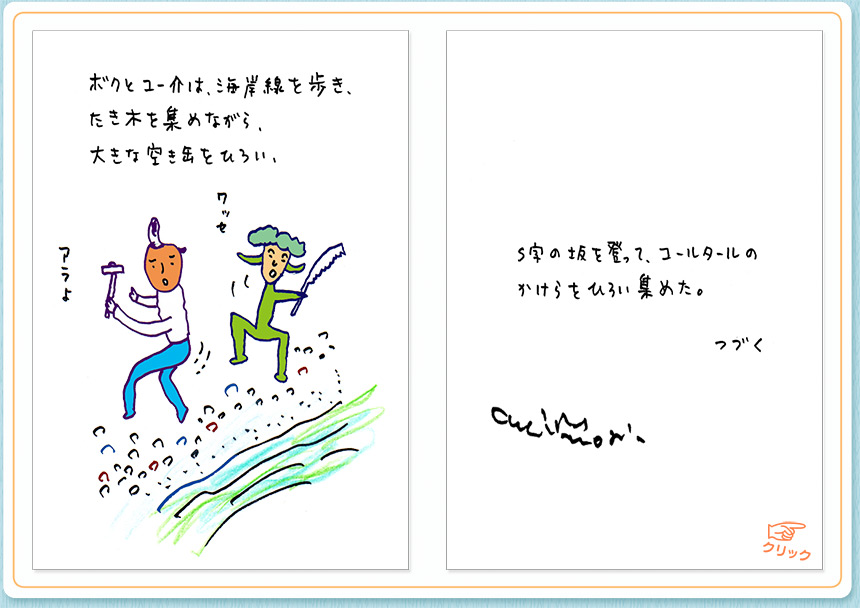 ボクとユー介は、海岸線を歩き、
たき木を集めながら、
大きな空き缶をひろい、
ワッセ
アラよ
S字の坂を登って、コールタールの
かけらをひろい集めた。
つづく
クリック